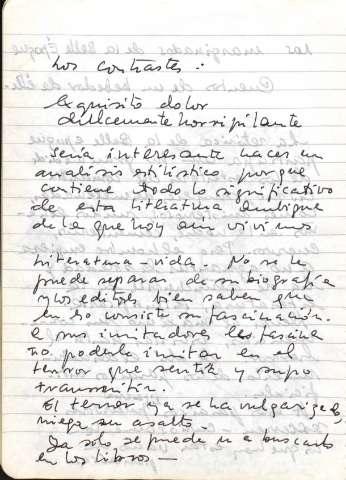 Los contrastes:
Exquisito dolor
dulcemente horripilante
Sería interesante hacer un
análisis estilístico porque
contiene todo lo significativo
de esta literatura
de la que hoy aún vivimos
Literatura-vida. No se le
puede separar de su biografía
y los editores bien saben que
en eso consiste su fascinación.
A sus imitadores les fascina
no poderle imitar en el
terror que sentía y supo
transmitir.
El terror ya se ha vulgarizado,
niega su asalto.
Ya solo se puede ir a buscarlo
en los libros —